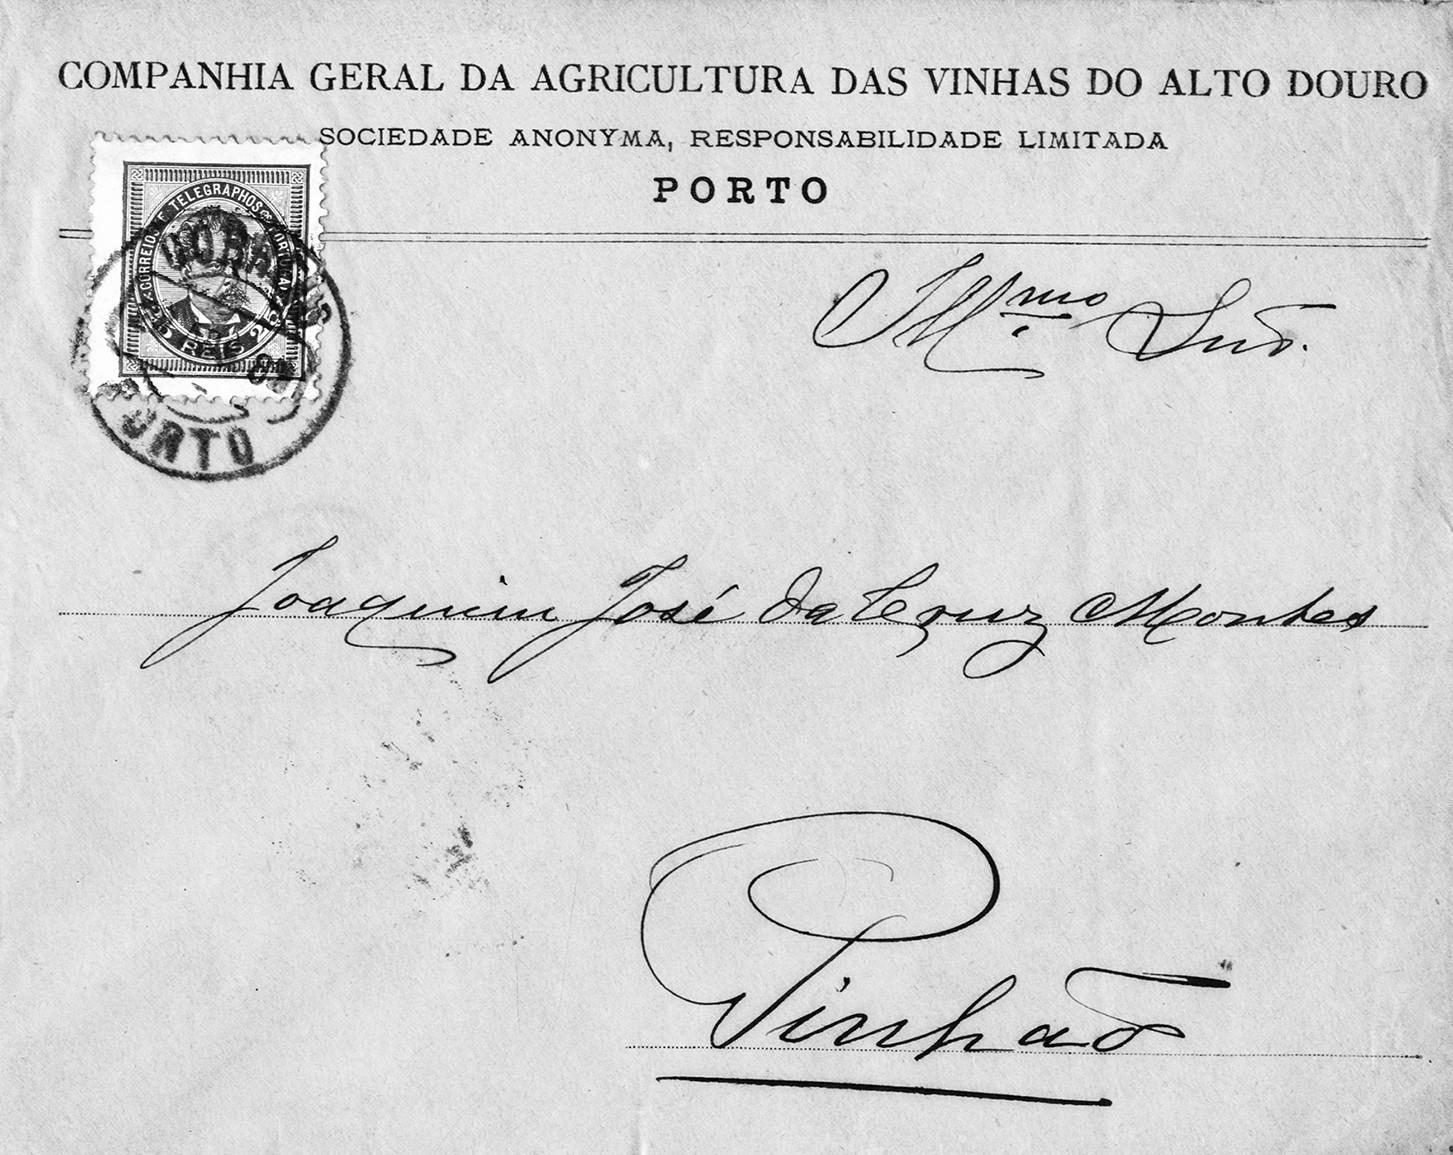 COMPANHIA GERAL DA AGRICULTURA DAS VINHAS DO ALTO DOURO
SOCIEDADE ANONYMA, RESPONSABILIDADE LIMITADA
PORTO
CORREIOS E TELEGRAPHOS DE PORTUGAL
25 REIS 25
PORTO
Illmo Snr.
Joaquim José da Cruz Montes
Pinhão